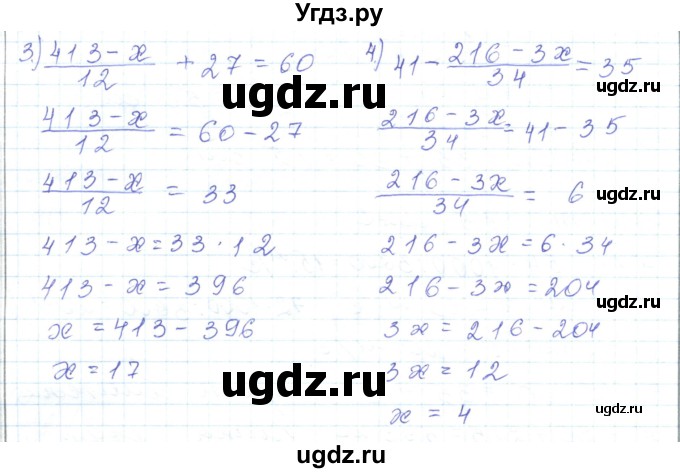 Угдз.ру
3.) (413 - x)/12 + 27 = 60
(413 - x)/12 = 60 - 27
(413 - x)/12 = 33
413 - x = 33 · 12
413 - x = 396
x = 413 - 396
x = 17
4) 41 - (216 - 3x)/34 = 35
(216 - 3x)/34 = 41 - 35
(216 - 3x)/34 = 6
216 - 3x = 6 · 34
216 - 3x = 204
3x = 216 - 204
3x = 12
x = 4
ugdz.ru
ugdz.ru
ugdz.ru
ugdz.ru
ugdz.ru
ugdz.ru
ugdz.ru
Угдз.ру